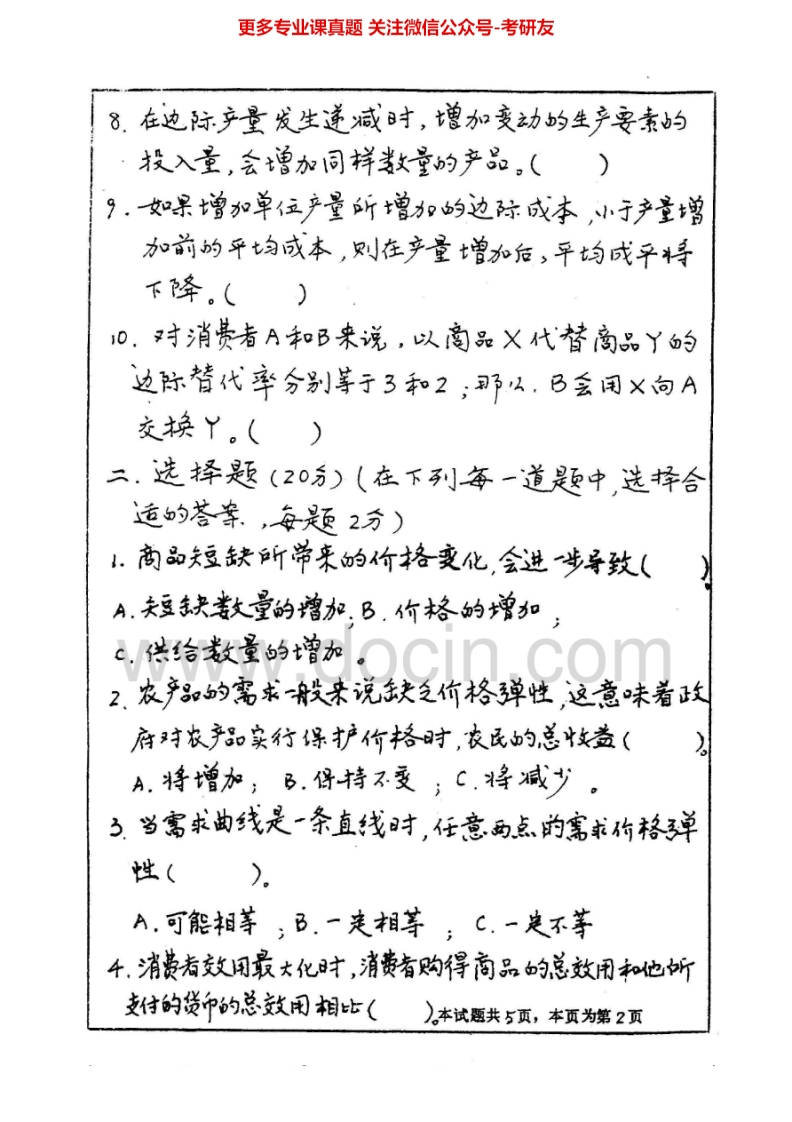 更多专业课真题 关注微信公众号-考研友
8. 在边际产量发生递减时，增加变动的生产要素的
投入量，会增加同样数量的产品。( )
9. 如果增加单位产量所增加的边际成本，小于产量增
加前的平均成本，则在产量增加后，平均成平将
下降。( )
10. 对消费者A和B来说，以商品X代替商品Y的
边际替代率分别等于3和2；那么. B会用X向A
交换Y。( )
二. 选择题(20分)(在下列每一道题中,选择合
适的答案，每题2分)
1. 商品短缺所带来的价格变化,会进一步导致( )。
A. 短缺数量的增加; B. 价格的增加;
C. 供给数量的增加。
www.docin.com
2. 农产品的需求一般来说缺乏价格弹性,这意味着政
府对农产品实行保护价格时,农民的总收益( )。
A. 将增加; B. 保持不变; C. 将减少。
3. 当需求曲线是一条直线时,任意两点的需求价格弹
性( )。
A. 可能相等; B. 一定相等; C. 一定不等
4. 消费者效用最大化时,消费者购得商品的总效用和他所
支付的货币的总效用相比( )。本试题共5页，本页为第2页